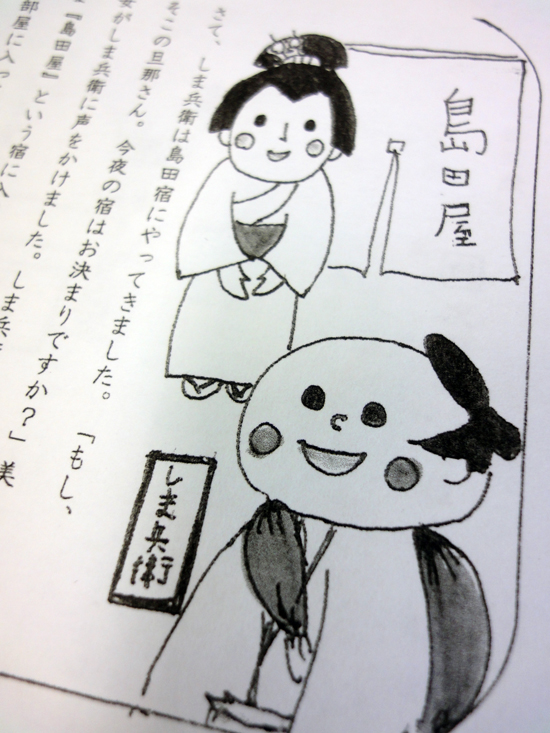 島田屋
しま兵衛
さて、しま兵衛は島田宿にやってきました。「もし、
そこの旦那さん。今夜の宿はお決まりですか？」美
がしま兵衛に声をかけました。しま兵
『島田屋』という宿に入
部屋に入っ